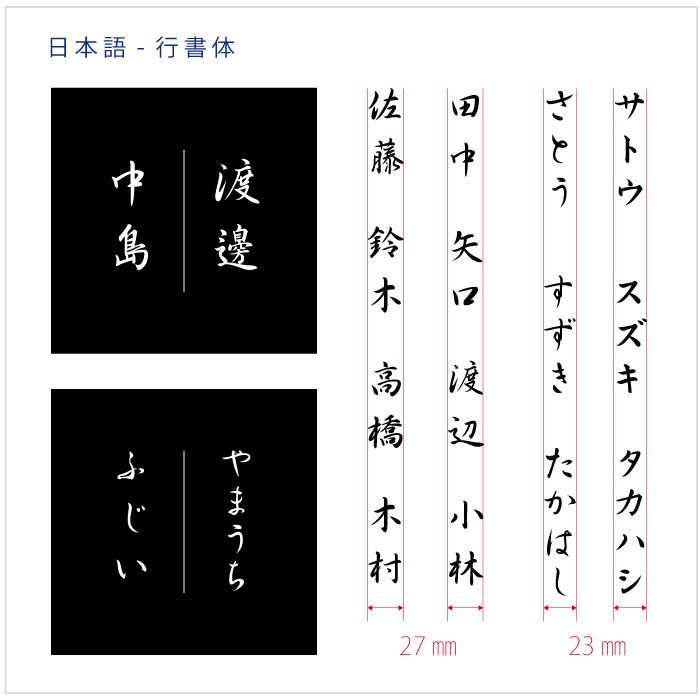 日本語 - 行書体
渡邊
中島
やまうち
ふじい
サトウ スズキ タカハシ
さとう すずき たかはし
田中 矢口 渡辺 小林
佐藤 鈴木 高橋 木村
27 mm
23 mm